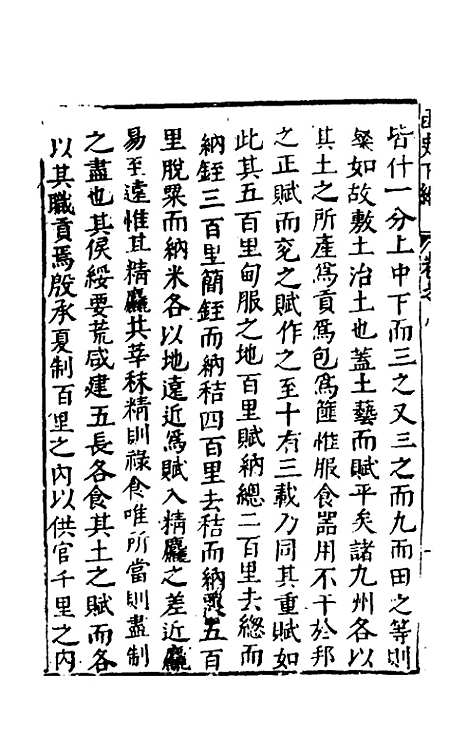 皆什一分上中下而三之又三之而九而田之等則
粲如故敷土治土也蓋土藝而賦平矣諸九州各以
其土之所產為貢為包為篚惟服食器用不干於邦
之正賦而兖之賦作之至十有三載乃同其重賦如
此其五百里甸服之地百里賦納總二百里去總而
納銍三百里簡銍而納秸四百里去秸而納粟五百
里脫粟而納米各以地遠近為賦入精麤之差近麤
易至遠惟其精麤共莘秣精則祿食唯所當則盡制
之盡也其侯綏要荒咸建五長各食其土之賦而各
以其職貢焉殷承夏制百里之內以供官千里之內